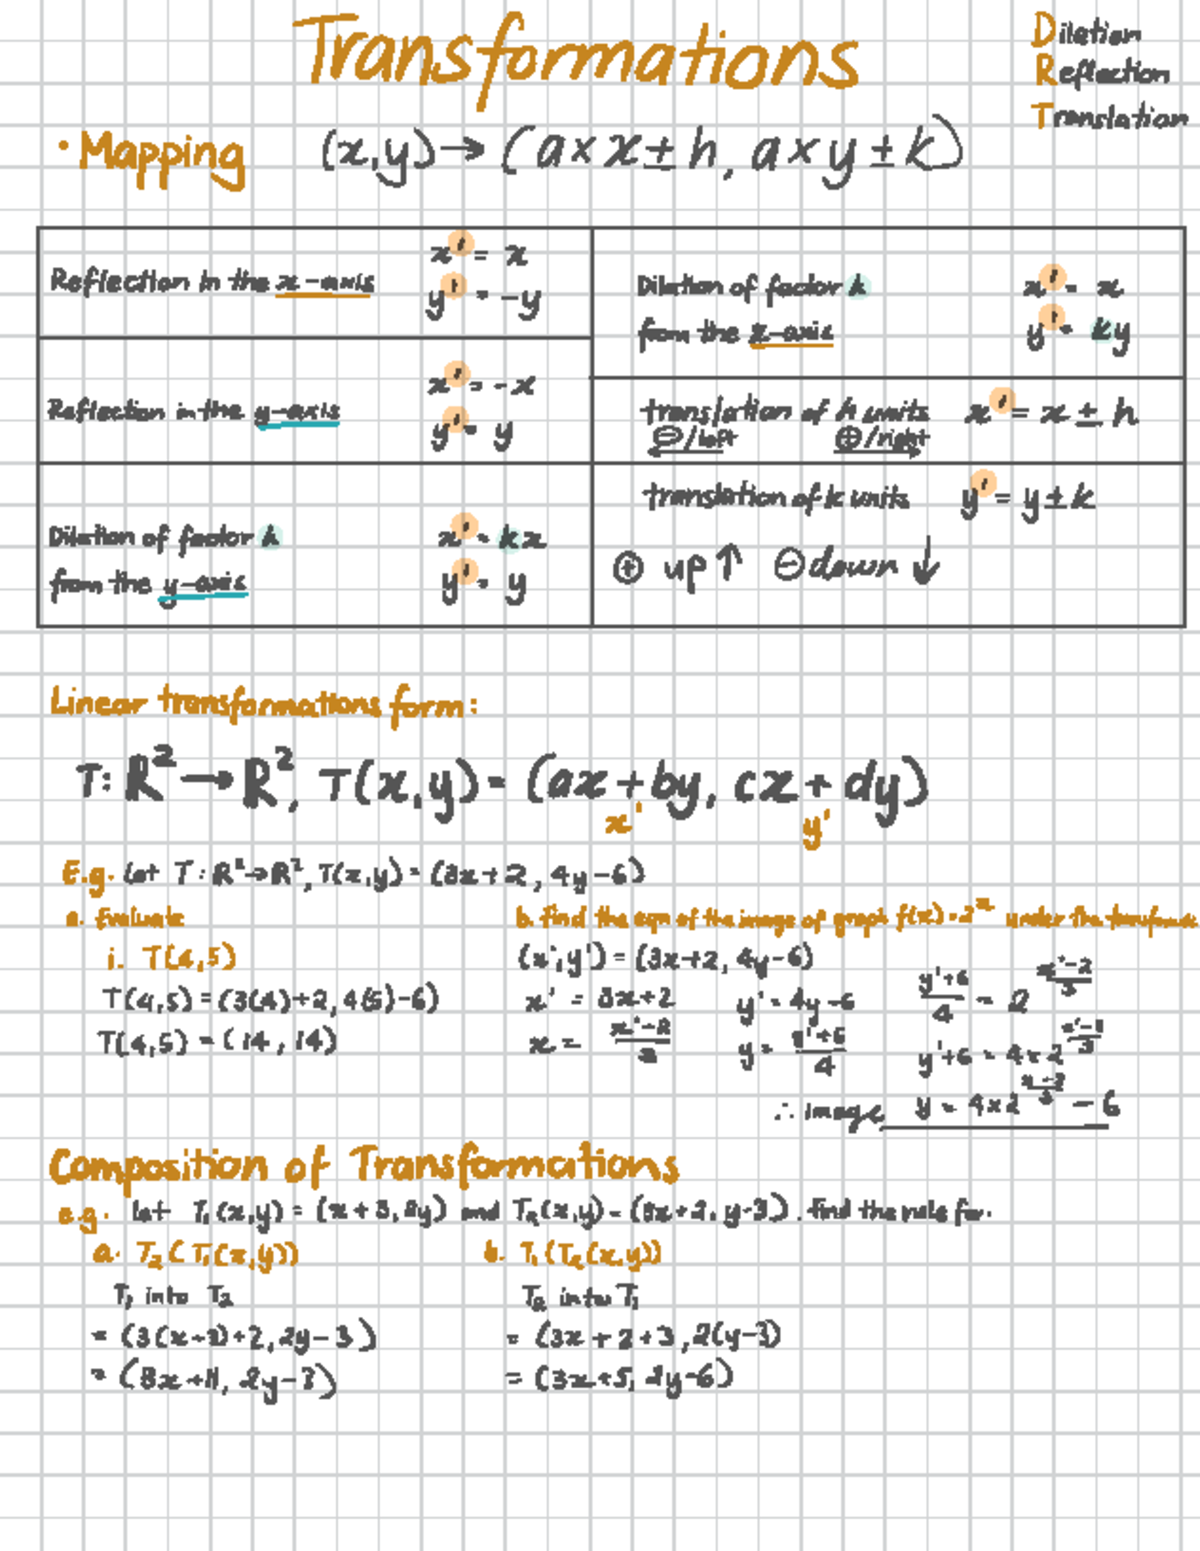 Transformations
Dilation
Reflection
Translation
• Mapping (x,y) → (a×x±h, a×y±k)
Reflection in the x-axis x' = x
y' = -y
Reflection in the y-axis x' = -x
y' = y
Dilation of factor k x' = kx
from the y-axis y' = y
Dilation of factor k x' = x
from the x-axis y' = ky
translation of h units x' = x ± h
⊖/left ⊕/right
translation of k units y' = y ± k
⊕ up ↑ ⊖ down ↓
Linear transformations form:
T: ℝ² → ℝ², T(x,y) = (ax + by, cx + dy)
x' y'
E.g. Let T: ℝ² → ℝ², T(x,y) = (3x+2, 4y-6)
a. Evaluate
i. T(4,5)
T(4,5) = (3(4)+2, 4(5)-6)
T(4,5) = (14, 14)
b. find the eqn of the image of graph f(x) = 2^x under the
(x', y') = (3x+2, 4y-6)
x' = 3x+2 y' = 4y-6
x = (x'-2)/3 y = (y'+6)/4
(y'+6)/4 = 2^((x'-2)/3)
y'+6 = 4×2^((x'-2)/3)
∴ image y = 4×2^((x-2)/3) - 6
Composition of Transformations
e.g. let T₁(x,y) = (x+3, 2y) and T₂(x,y) = (3x+2, y-3). find the rule for.
a. T₂(T₁(x,y))
T₁ into T₂
= (3(x+3)+2, 2y-3)
= (3x+11, 2y-3)
b. T₁(T₂(x,y))
T₂ into T₁
= (3x+2+3, 2(y-3)
= (3x+5, 2y-6)